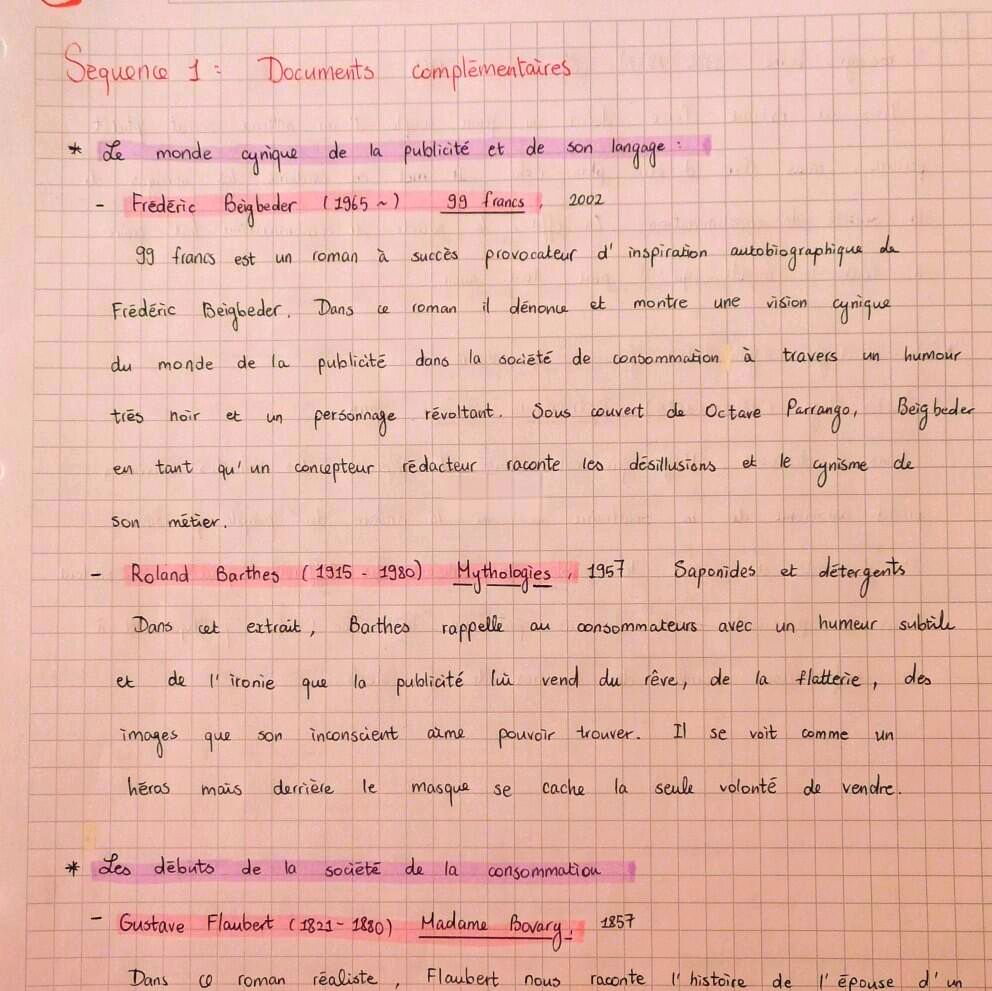 Séquence 1 : Documents complémentaires
* Le monde cynique de la publicité et de son langage :
- Frédéric Beigbeder (1965 ~) 99 francs, 2002
99 francs est un roman à succès provocateur d'inspiration autobiographique de
Frédéric Beigbeder. Dans ce roman il dénonce et montre une vision cynique
du monde de la publicité dans la société de consommation à travers un humour
très noir et un personnage révoltant. Sous couvert de Octave Parrango, Beigbeder
en tant qu'un concepteur rédacteur raconte les désillusions et le cynisme de
son métier.
- Roland Barthes (1915 - 1980) Mythologies, 1957 Saponides et détergents
Dans cet extrait, Barthes rappelle au consommateurs avec un humeur subtile
et de l'ironie que la publicité lui vend du rêve, de la flatterie, des
images que son inconscient aime pouvoir trouver. Il se voit comme un
héros mais derrière le masque se cache la seule volonté de vendre.
* Les débuts de la société de la consommation
- Gustave Flaubert (1821 - 1880) Madame Bovary, 1857
Dans ce roman réaliste, Flaubert nous raconte l'histoire de l'épouse d'un